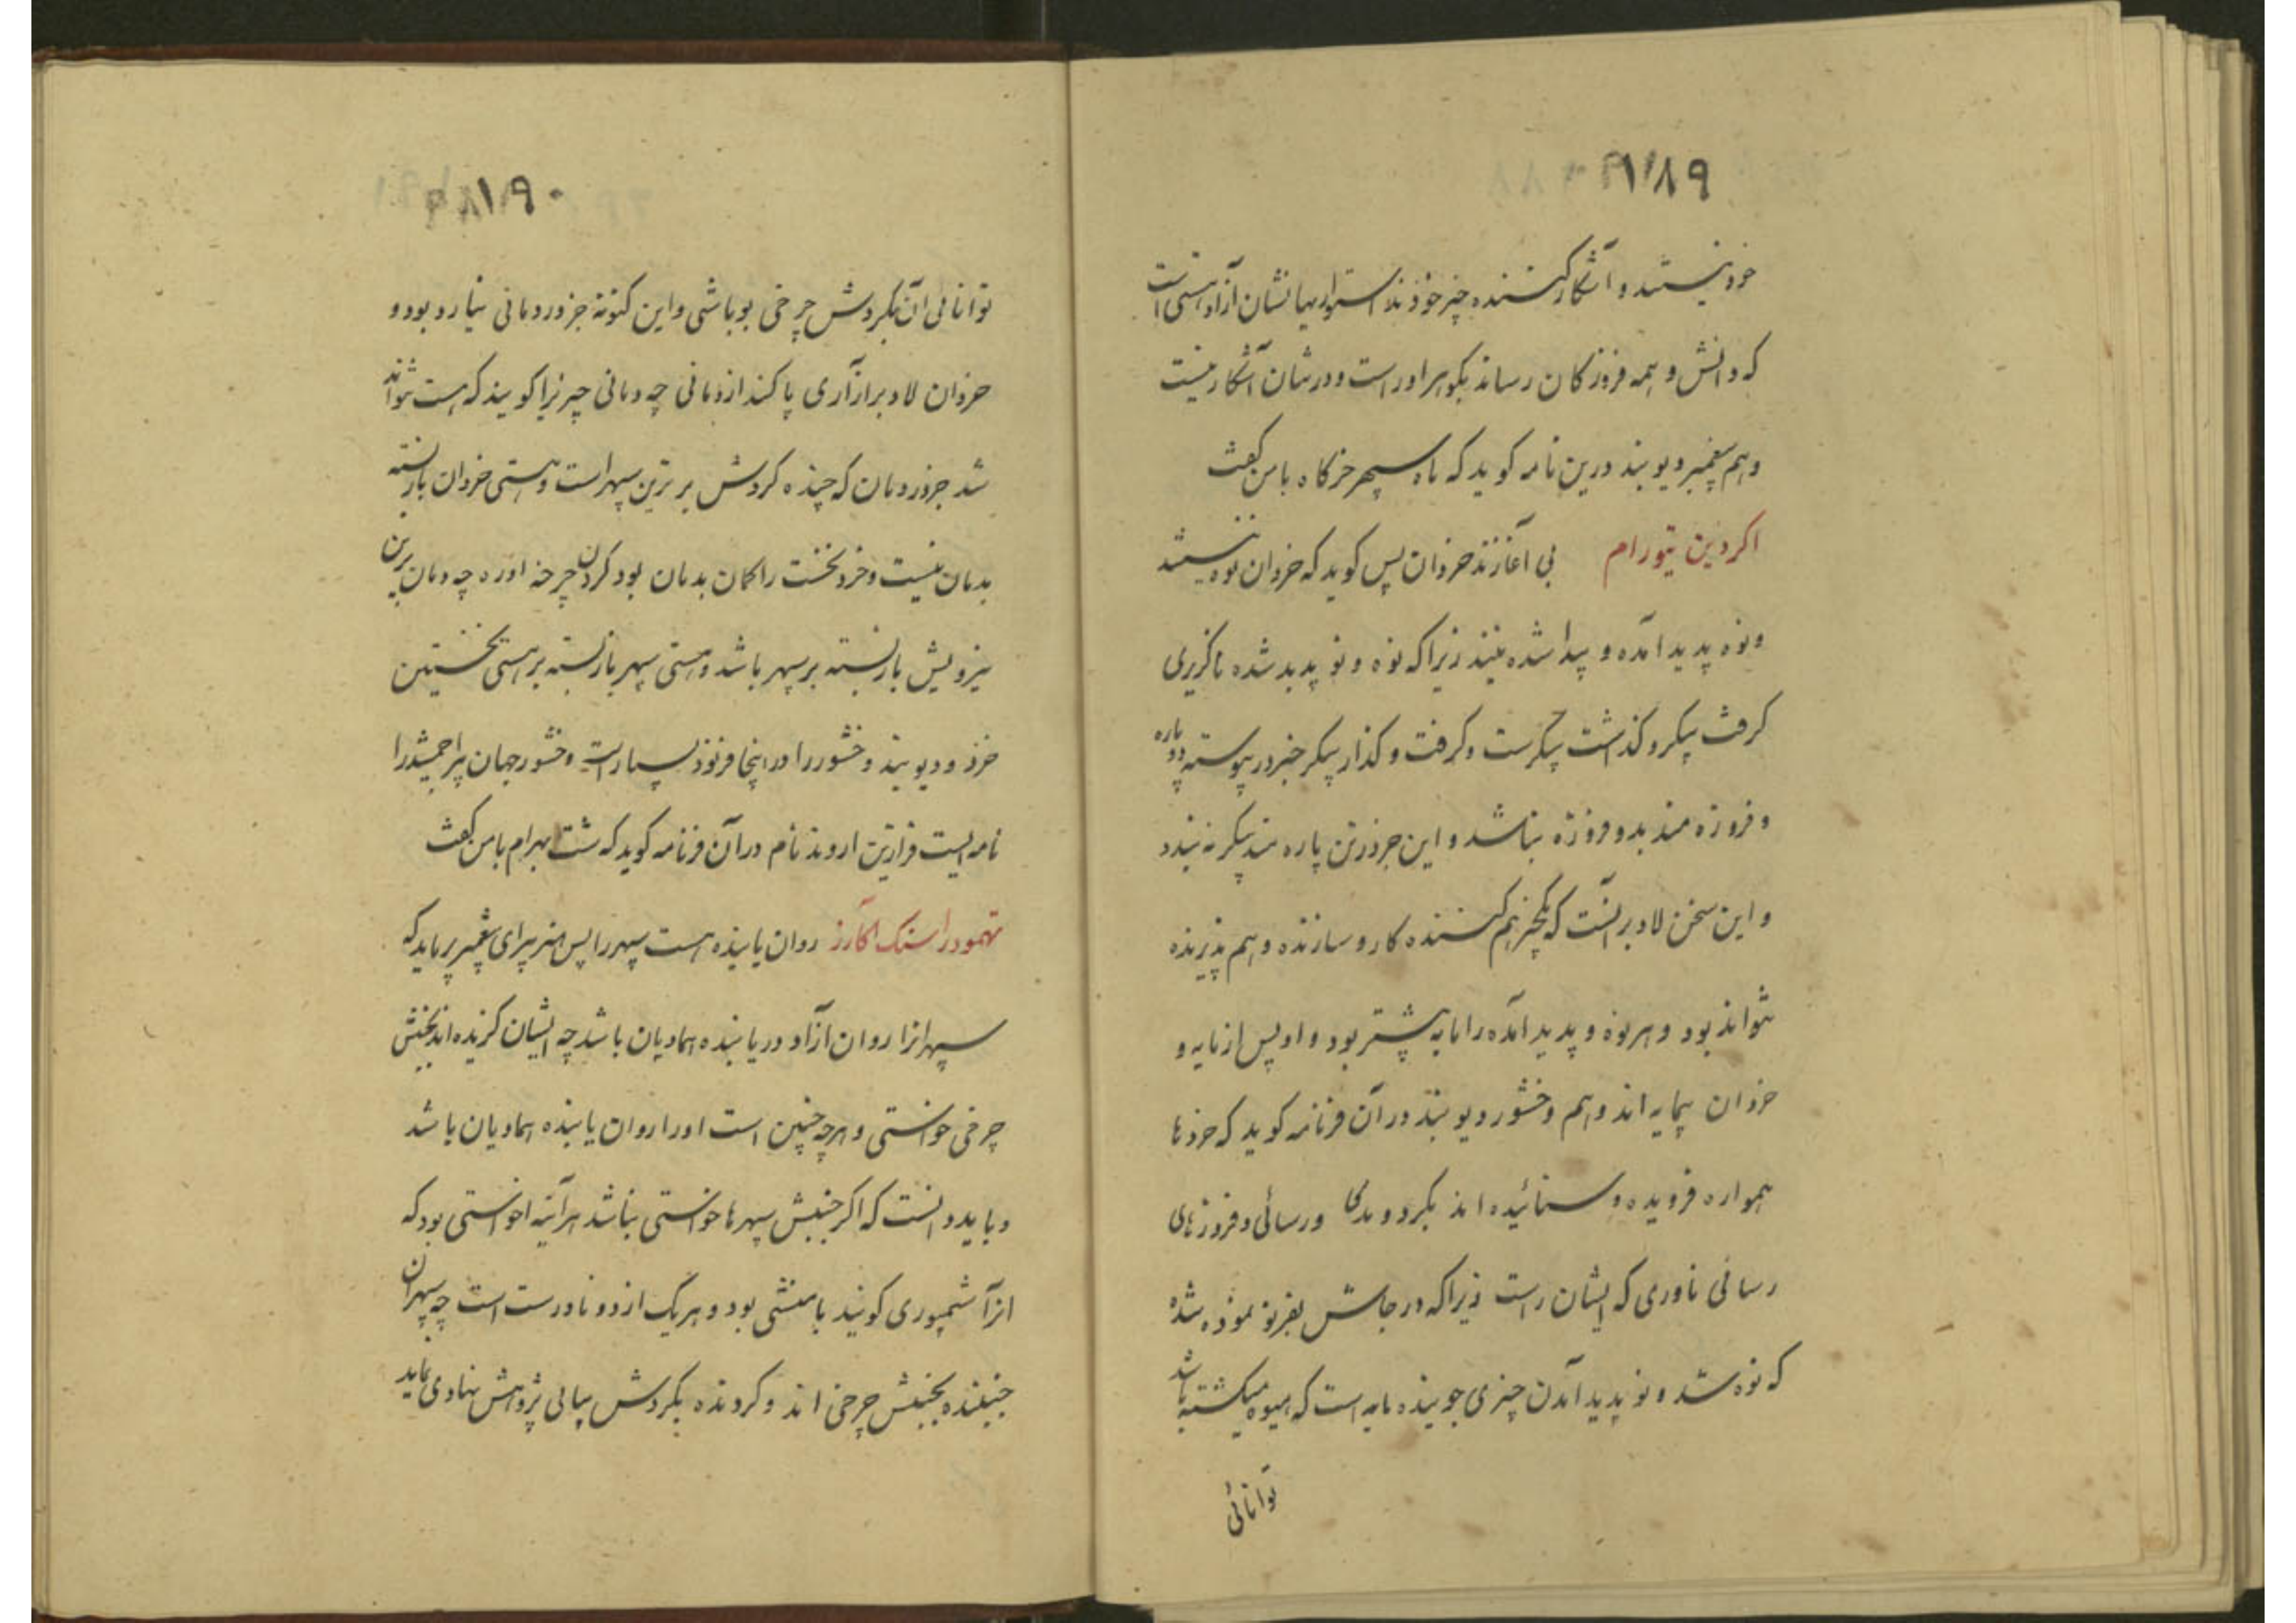 ۱۸۹
خود نیستند و آشکار کننده چیز خودند استواریها نشان آزاد هستی است
که دانش و همه فروزکان رساند بکوهر اور است و درشان آشکار نیست
و هم پیغمبر ویوبند درین نامه کوید که ماه سپهر خرکاه با من کفت
اکردین تیورام بی آغازند خردان پس کوید که خردان نوه نیستند
و نوه پدید آمده و پیدا شده نیند زیرا که نوه و نو پدید شده ناکزیری
کرفت پیکر و کذاشت پیکرست و کرفت و کذار پیکر جز در پیوسته دو پاره
و فروزه مند بدو فروزه نباشد و این جز در تن پاره مند پیکر نه بندد
و این سخن لاد بر آنست که یکچیز هم کننده کار و سازنده و هم پذیرنده
نتواند بود و هر نوه و پدید آمده را مایه پیشتر بود و او پس از مایه و
خردان بیمایه اند و هم وخشور ویوبند در آن فرنامه کوید که خردها
همواره فرویده و ستائیده اند بکرد و بدکی و رسائی و فروزهای
رسائی ناوری که ایشان راست زیرا که در جایش بفرنود نموده شده
که نوه شد و نو پدید آمدن چیزی جوینده مایه است که همیوه میکشته باشد
توانائی
۱۹۰
توانائی آن بکردش چرخی بوباشی و این کنونه جز در دمانی نیارد بود و
خردان لاد بر از آری پاکند از دمانی چه دمانی چیزیرا کویند که هست نتواند
شد جز در دمان که چیذه کردش برترین سپهر است و هستی خردان بازبسته
بدمان نیست و خرد نخست را کمان بدمان بود کردن چرخه آورد چه دمان برین
نیزویش بازبسته بر سپهر باشد و هستی سپهر بازبسته بر هستی نخستین
خرد و ویوبند وخشور را در اینجا فرنود بسیار است وخشور جهان پیرا جمشید را
نامه ایست فرازین اروند نام در آن فرنامه کوید که شت بهرام با من کفت
تهمودر استک اکارز روان یابنده هست سپهر را پس هنر پیرای پیغمبر پرماید که
سپهرانرا روان آزاد دریابنده همادیان باشد چه ایشان کزیده اند بجنبش
چرخی خواستی و هرچه چنین است او را روان یابنده همادیان باشد
و باید دانست که اکر جنبش سپهرها خواستی نباشد هر آینه اخواستی بود که
انرا شمپوری کویند یا منشی بود و هر یک از دو نادرست است چه سپهران
جنبنده بجنبش چرخی اند و کردنده بکردش بیانی پژوهش نهادی نماید